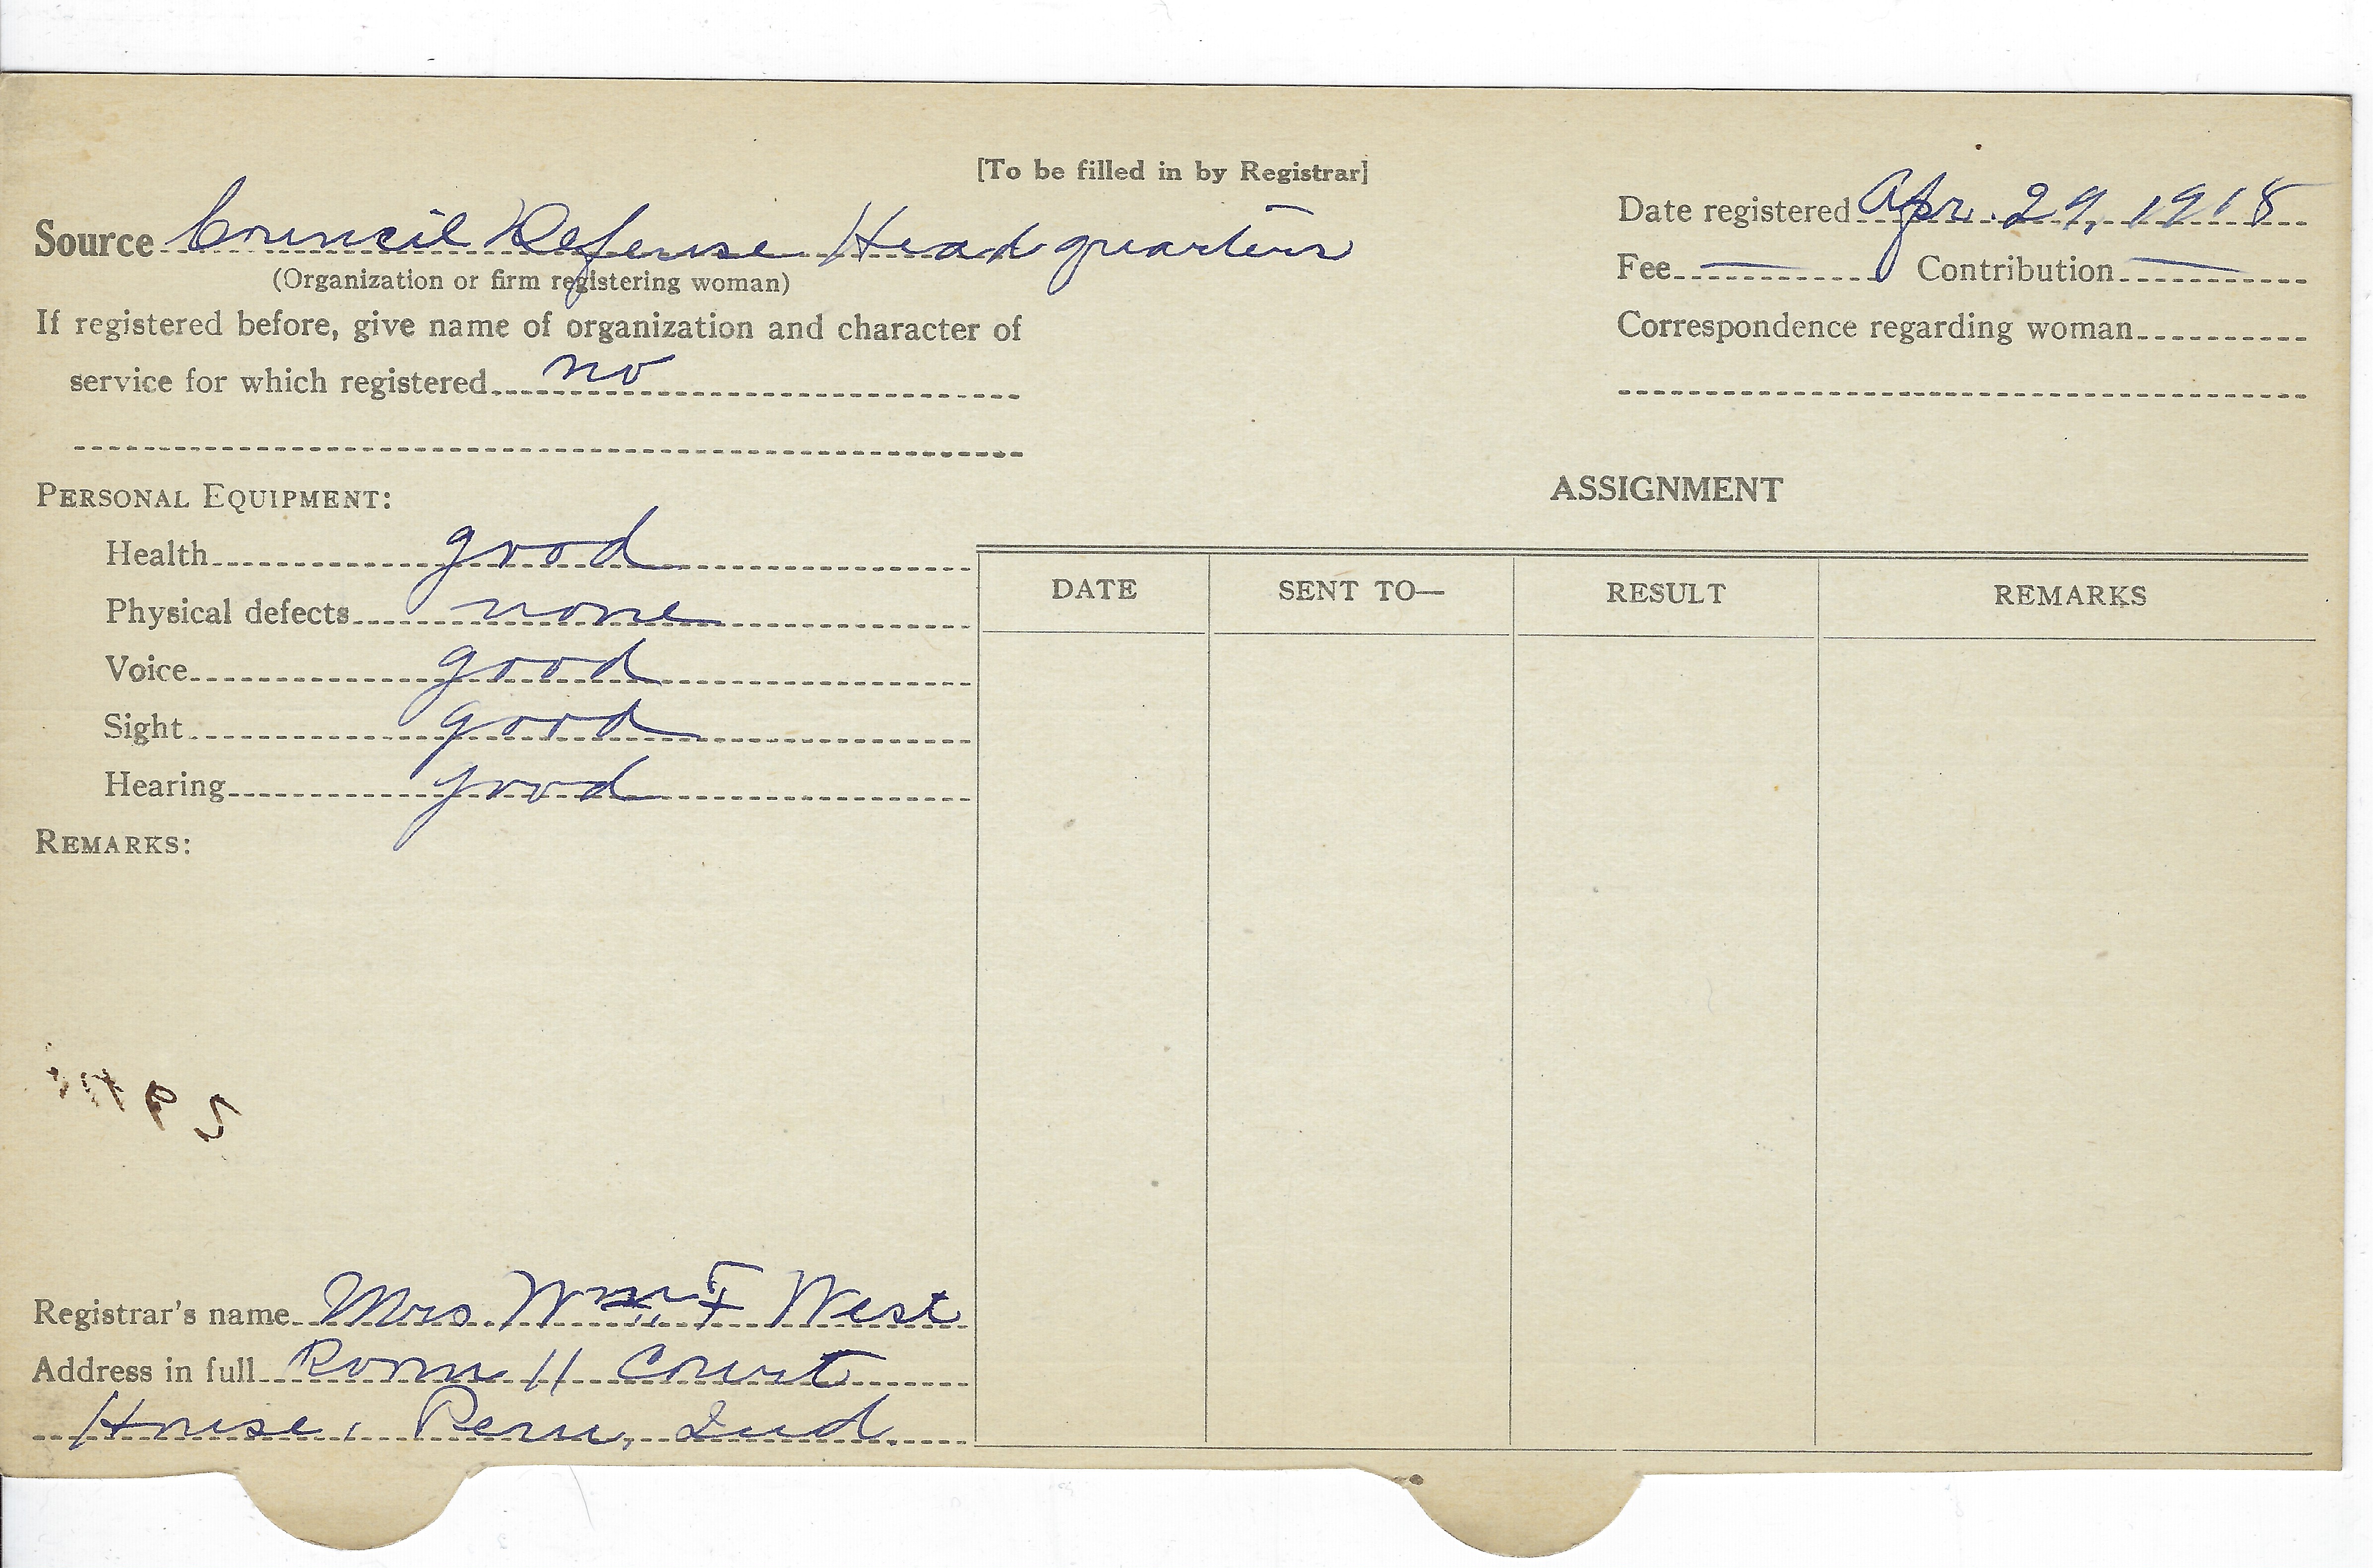 [To be filled in by Registrar]
Source Council Defense Headquarters
(Organization or firm registering woman)
If registered before, give name of organization and character of
service for which registered no
Date registered Apr. 29, 1918
Fee — Contribution —
Correspondence regarding woman
PERSONAL EQUIPMENT:
Health good
Physical defects none
Voice good
Sight good
Hearing good
REMARKS:
ASSIGNMENT
DATE SENT TO— RESULT REMARKS
Registrar's name Mrs Wm F West
Address in full Room 11 Court
House, Peru, Ind.